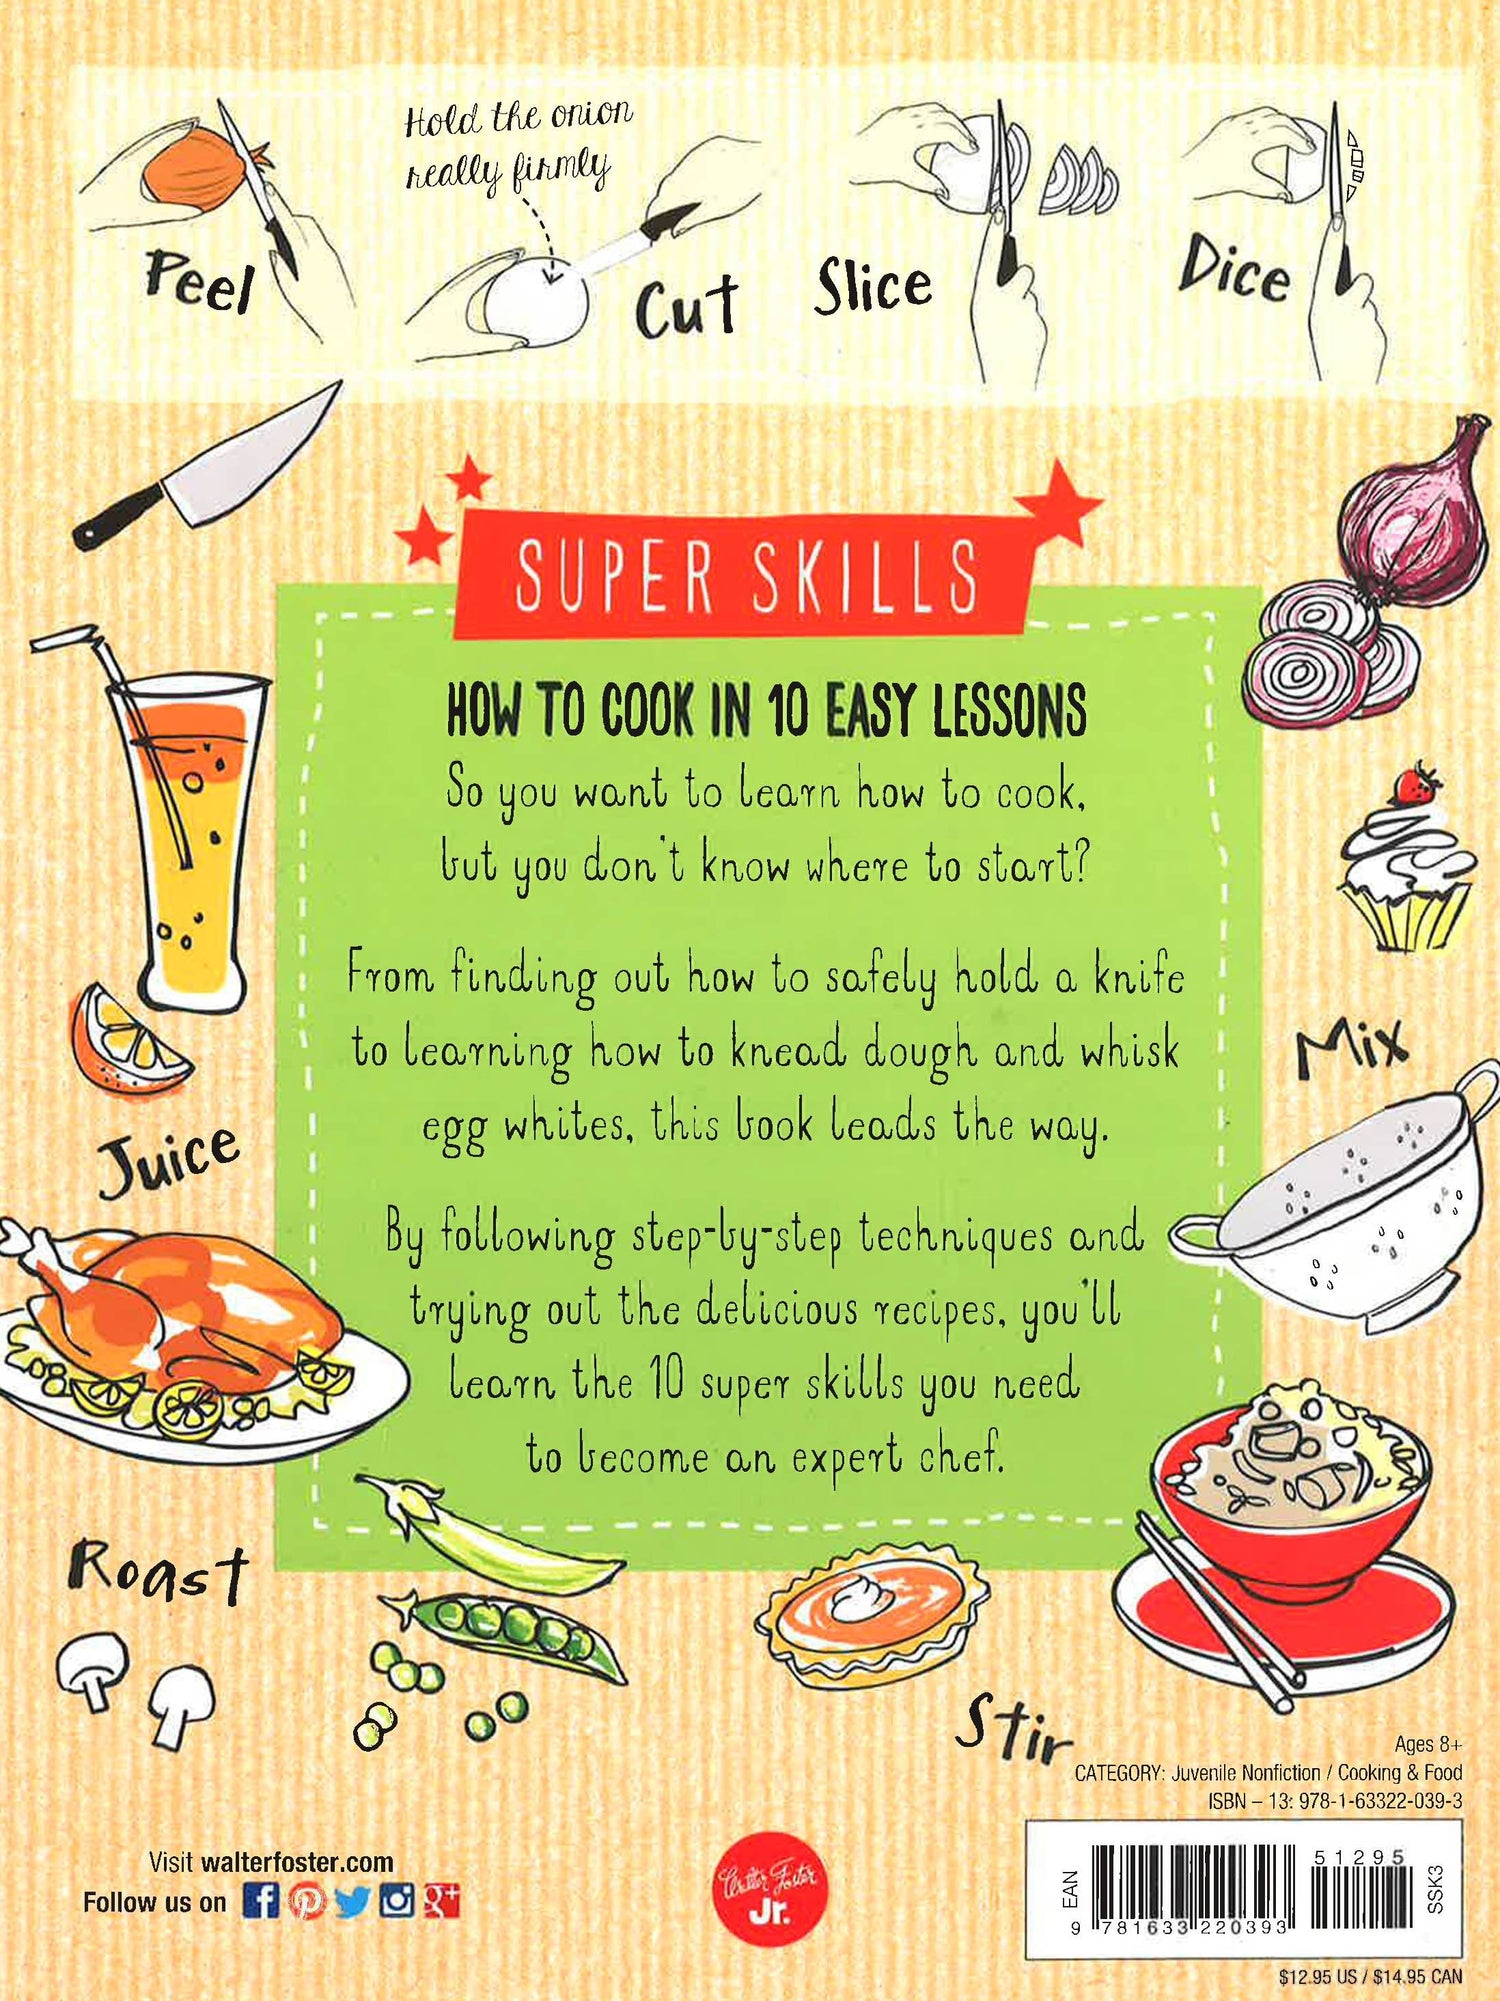 Hold the onion
really firmly
Peel
Cut
Slice
Dice
SUPER SKILLS
HOW TO COOK IN 10 EASY LESSONS
So you want to learn how to cook,
but you don't know where to start?
From finding out how to safely hold a knife
to learning how to knead dough and whisk
egg whites, this book leads the way.
By following step-by-step techniques and
trying out the delicious recipes, you'll
learn the 10 super skills you need
to become an expert chef.
Juice
Mix
Roast
Stir
Ages 8+
CATEGORY: Juvenile Nonfiction / Cooking & Food
ISBN – 13: 978-1-63322-039-3
Visit walterfoster.com
Follow us on
Walter Foster
Jr.
EAN
51295
SSK3
9 781633 220393
$12.95 US / $14.95 CAN